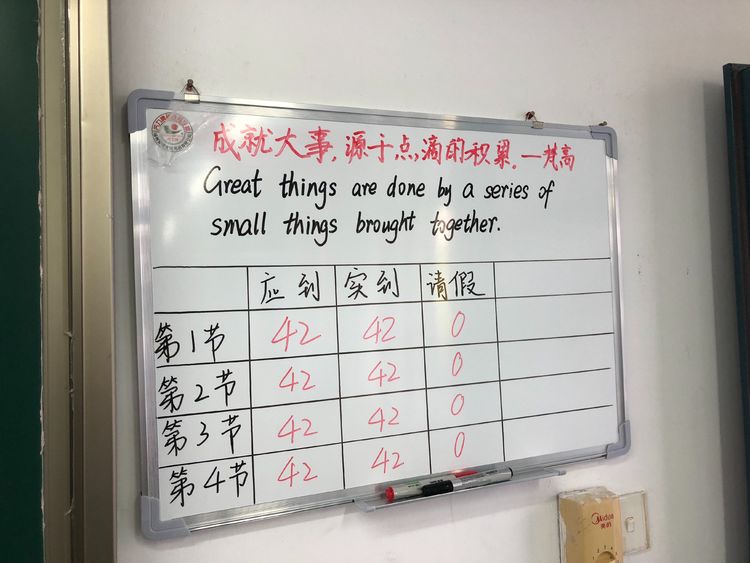 成就大事,源于点滴的积累。—梵高
Great things are done by a series of
small things brought together.
应到 实到 请假
第1节 42 42 0
第2节 42 42 0
第3节 42 42 0
第4节 42 42 0
Midea
美的